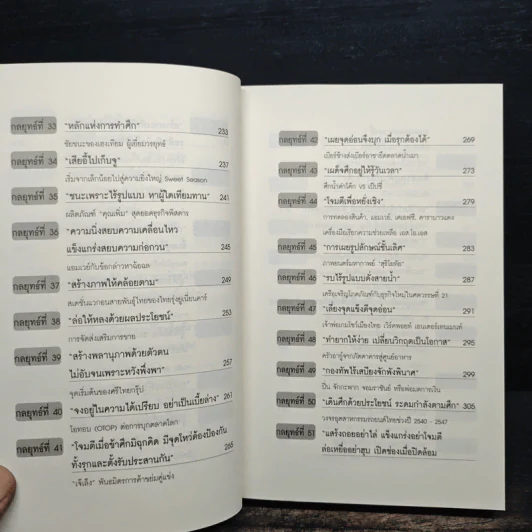 กลยุทธ์ที่ 33 "หลักแห่งการทำศึก" 233
ชัยชนะของเฮงเทียม ผู้เยี่ยมวรยุทธ์
กลยุทธ์ที่ 34 "เสียอี้ไปเก็บจู" 237
เริ่มจากเล็กน้อยไปสู่ความยิ่งใหญ่ Sweet Season
กลยุทธ์ที่ 35 "ชนะเพราะไร้รูปแบบ หาผู้ใดเทียมทาน" 241
ผลิตภัณฑ์ "คุณเพิ่ม" สุดยอดธุรกิจพิสดาร
กลยุทธ์ที่ 36 "ความนิ่งสยบความเคลื่อนไหว
แข็งแกร่งสยบความก่อกวน" 245
แอมเวย์กับข้อกล่าวหาฉ้อฉล
กลยุทธ์ที่ 37 "สร้างภาพให้คล้อยตาม" 249
สเตชั่นแวกอนสายพันธุ์ไทยของไทยรุ่งยูเนี่ยนคาร์
กลยุทธ์ที่ 38 "ล่อให้หลงด้วยผลประโยชน์" 253
การจัดส่งเสริมการขาย
กลยุทธ์ที่ 39 "สร้างพลานุภาพด้วยตัวตน
ไม่อับจนเพราะหวังพึ่งพา" 257
จุดเริ่มต้นของศรีไทยกรุ๊ป
กลยุทธ์ที่ 40 "จงอยู่ในความได้เปรียบ อย่าเป็นเบี้ยล่าง" 261
โอทอป (OTOP) ต่อการบุกตลาดโลก
กลยุทธ์ที่ 41 "โจมตีเมื่อข้าศึกมิฉุกคิด มีจุดโหว่ต้องป้องกัน
ทั้งรุกและตั้งรับประสานกัน" 265
"เจ๊เล้ง" พันธมิตรการค้าขย่มคู่แข่ง
กลยุทธ์ที่ 42 "เผยจุดอ่อนจึงบุก เมื่อรุกต้องได้" 269
เบียร์ช้างส่งเบียร์อาชายึดตลาดนำเมา
กลยุทธ์ที่ 43 "เผด็จศึกอยู่ให้รู้วันเวลา" 273
ศึกน้ำดำโค้ก VS เป๊ปซี่
กลยุทธ์ที่ 44 "โจมตีเพื่อหยั่งเชิง" 279
การทดลองสินค้า, แอมเวย์, เคเอฟซี, คาราบาวแดง
เครื่องมือเรียกความช่วยเหลือ เอส.โอ.เอส
กลยุทธ์ที่ 45 "การเผยรูปลักษณ์ชั้นเลิศ" 283
ภาพยนตร์มหากาพย์ "สุริโยทัย"
กลยุทธ์ที่ 46 "รบไร้รูปแบบดั่งสายน้ำ" 287
เครือเจริญโภคภัณฑ์กับธุรกิจใหม่ในศตวรรษที่ 21
กลยุทธ์ที่ 47 "เลี่ยงจุดแข็งตีจุดอ่อน" 291
เจ้าพ่อเกมโชว์เมืองไทย เวิร์คพอยท์ เอนเตอร์เทนเมนท์
กลยุทธ์ที่ 48 "ทำยากให้ง่าย เปลี่ยนวิกฤตเป็นโอกาส" 295
ครัวอารู่จากภัตตาคารสู่ศูนย์อาหาร
กลยุทธ์ที่ 49 "กองทัพไร้เสบียงจักพังพินาศ" 299
ปีน จักกะพาก จอมราชันย์ หรือพ่อมดการเงิน
กลยุทธ์ที่ 50 "เดินศึกด้วยประโยชน์ ระดมกำลังตามศึก" 305
วงจรอุตสาหกรรมรถยนต์ไทยช่วงปี 2540 - 2547
กลยุทธ์ที่ 51 "แสร้งถอยอย่าไล่ แข็งแกร่งอย่าโจมตี
ล่อเหยื่ออย่าฮุบ เปิดช่องเมื่อปิดล้อม